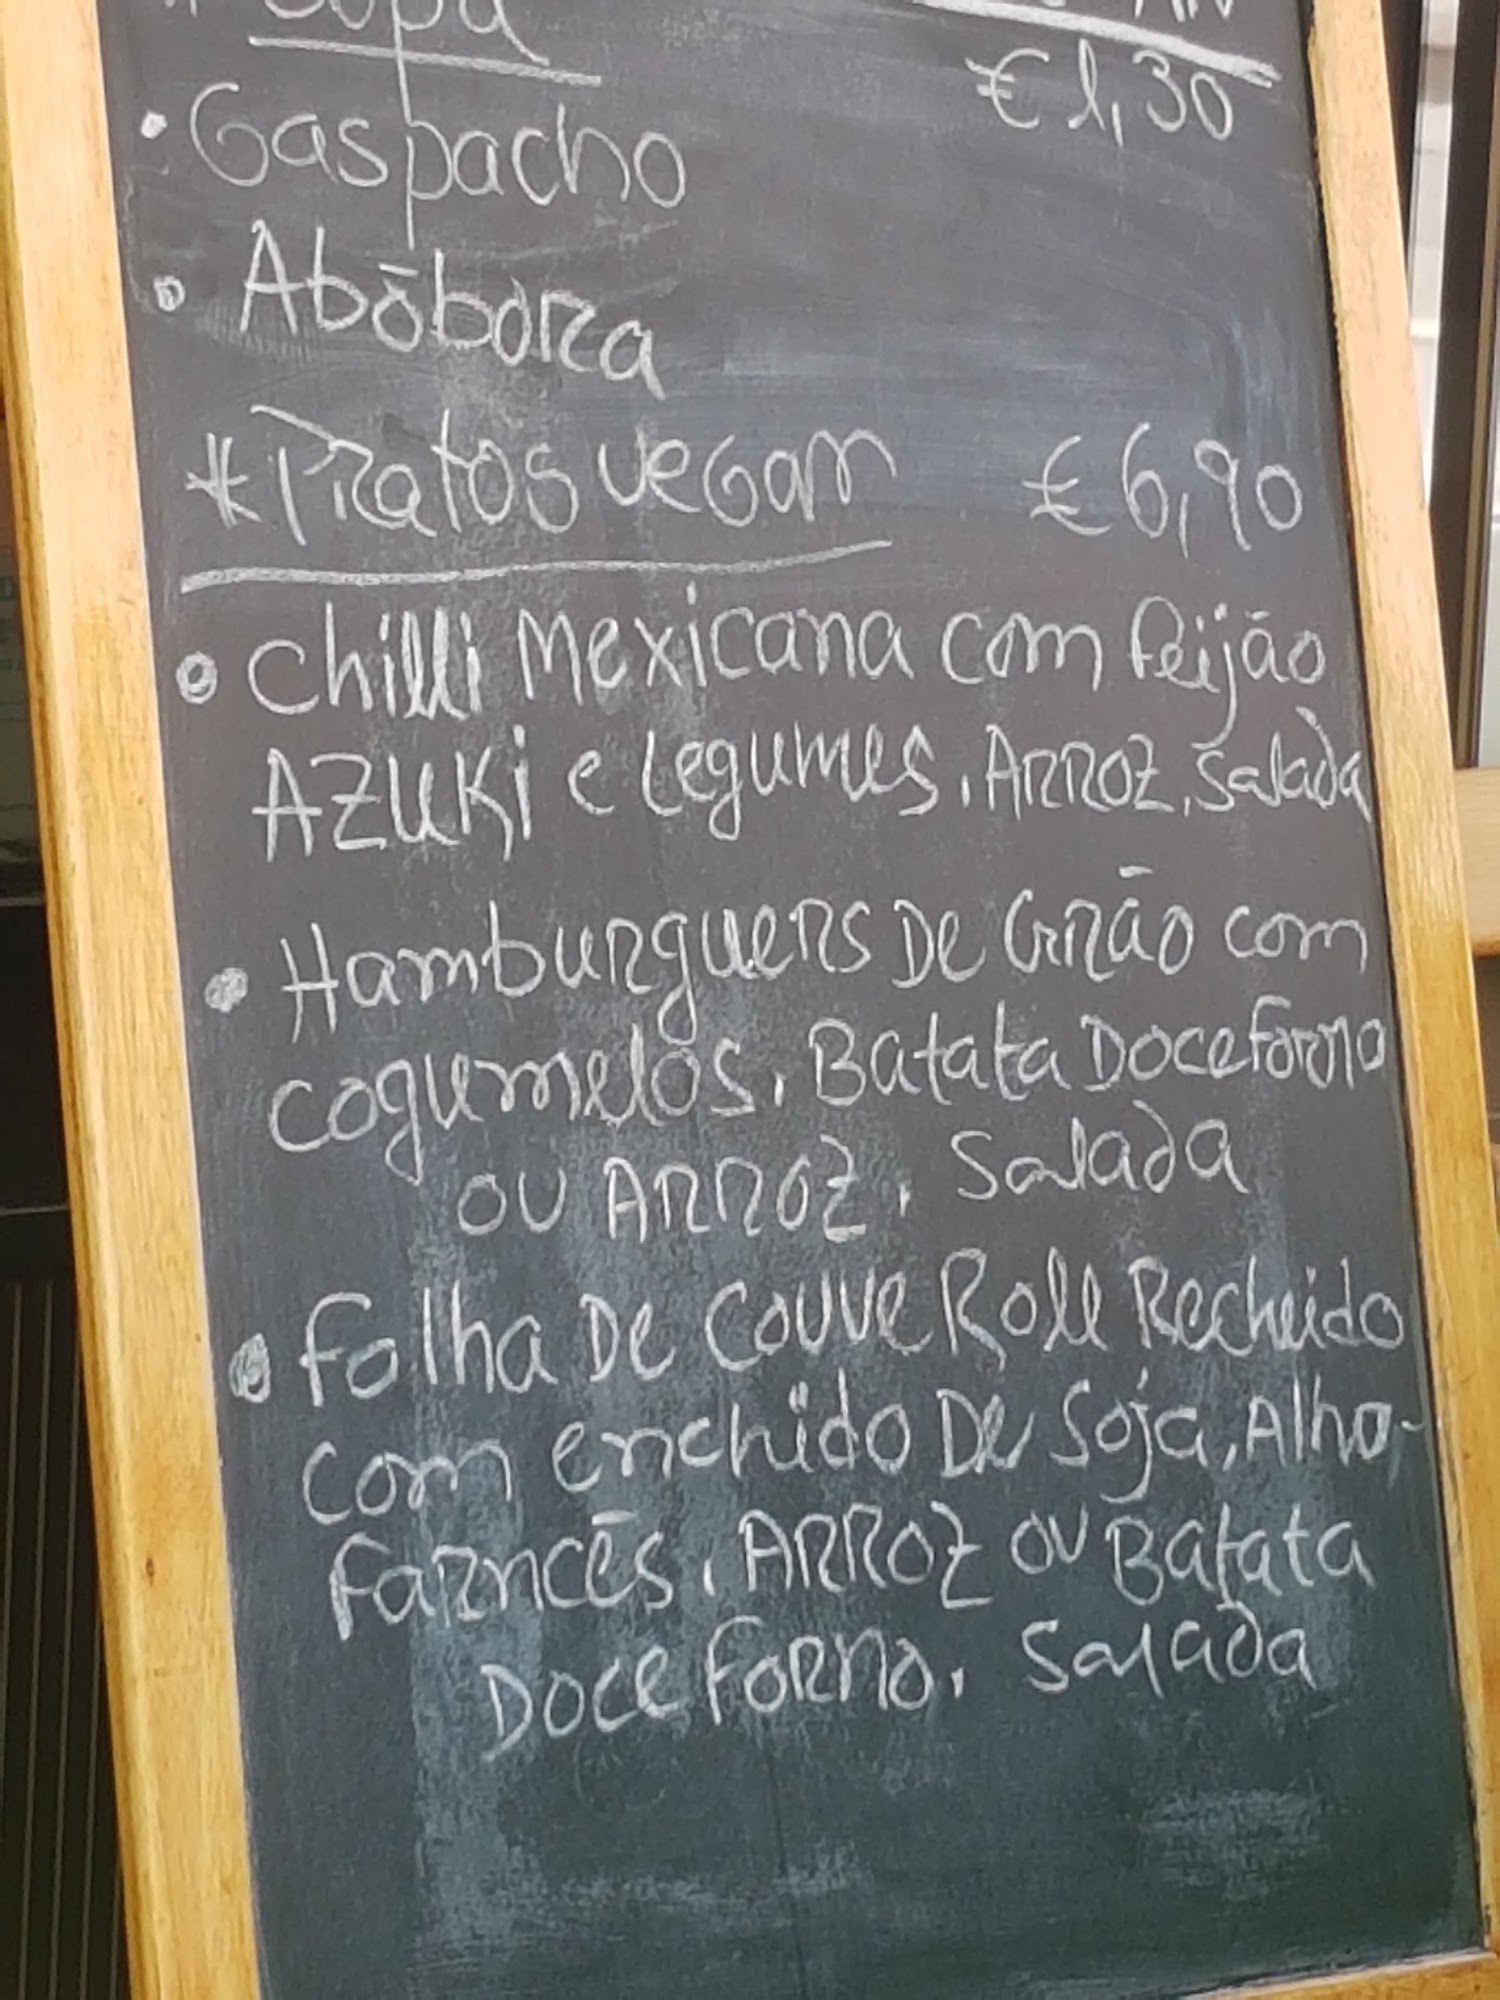 Sopa
€ 1,30
• Gaspacho
• Abōbora
* Pratos vegan € 6,90
• Chilli Mexicana com Feijão
AZUKi e Legumes, ARROZ, Salada
• Hamburguers De Grão com
cogumelos, Batata Doce Forno
ou ARROZ, Salada
• Folha De Couve Roll Recheido
com enchido De Soja, Alho-
Farncēs, ARROZ ou Batata
Doce Forno, Salada